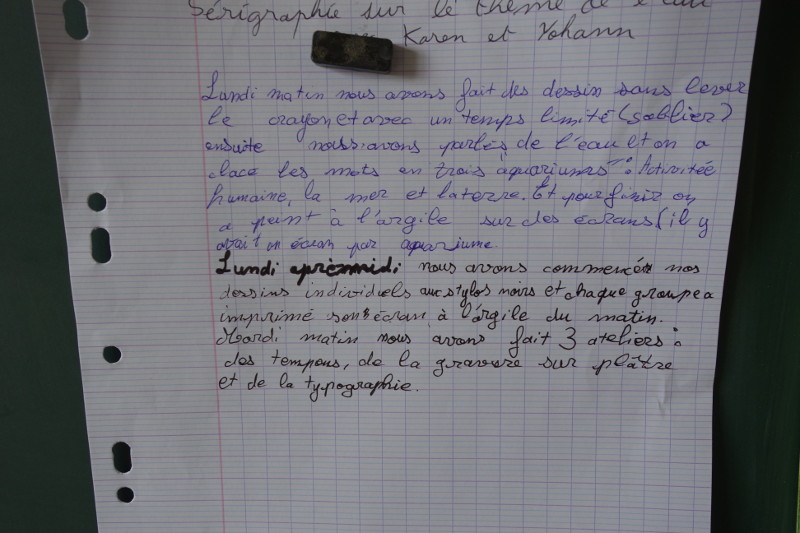 Sérigraphie sur le thème de l'eau
Karen et Yohann
Lundi matin nous avons fait des dessin sans lever
le crayon et avec un temps limité (sablier)
ensuite nous avons parlés de l'eau et on a
classé les mots en trois "aquariums": Activitée
humaine, la mer et la terre. Et pour finir on
a peint à l'argile sur des écrans (il y
avait un écran par aquariume.
Lundi aprèsmidi nous avons commencés nos
dessins individuels aux stylos noirs et chaque groupe a
imprimé son écran à l'argile du matin.
Mardi matin nous avons fait 3 ateliers:
des tempons, de la gravure sur plâtre
et de la typographie.